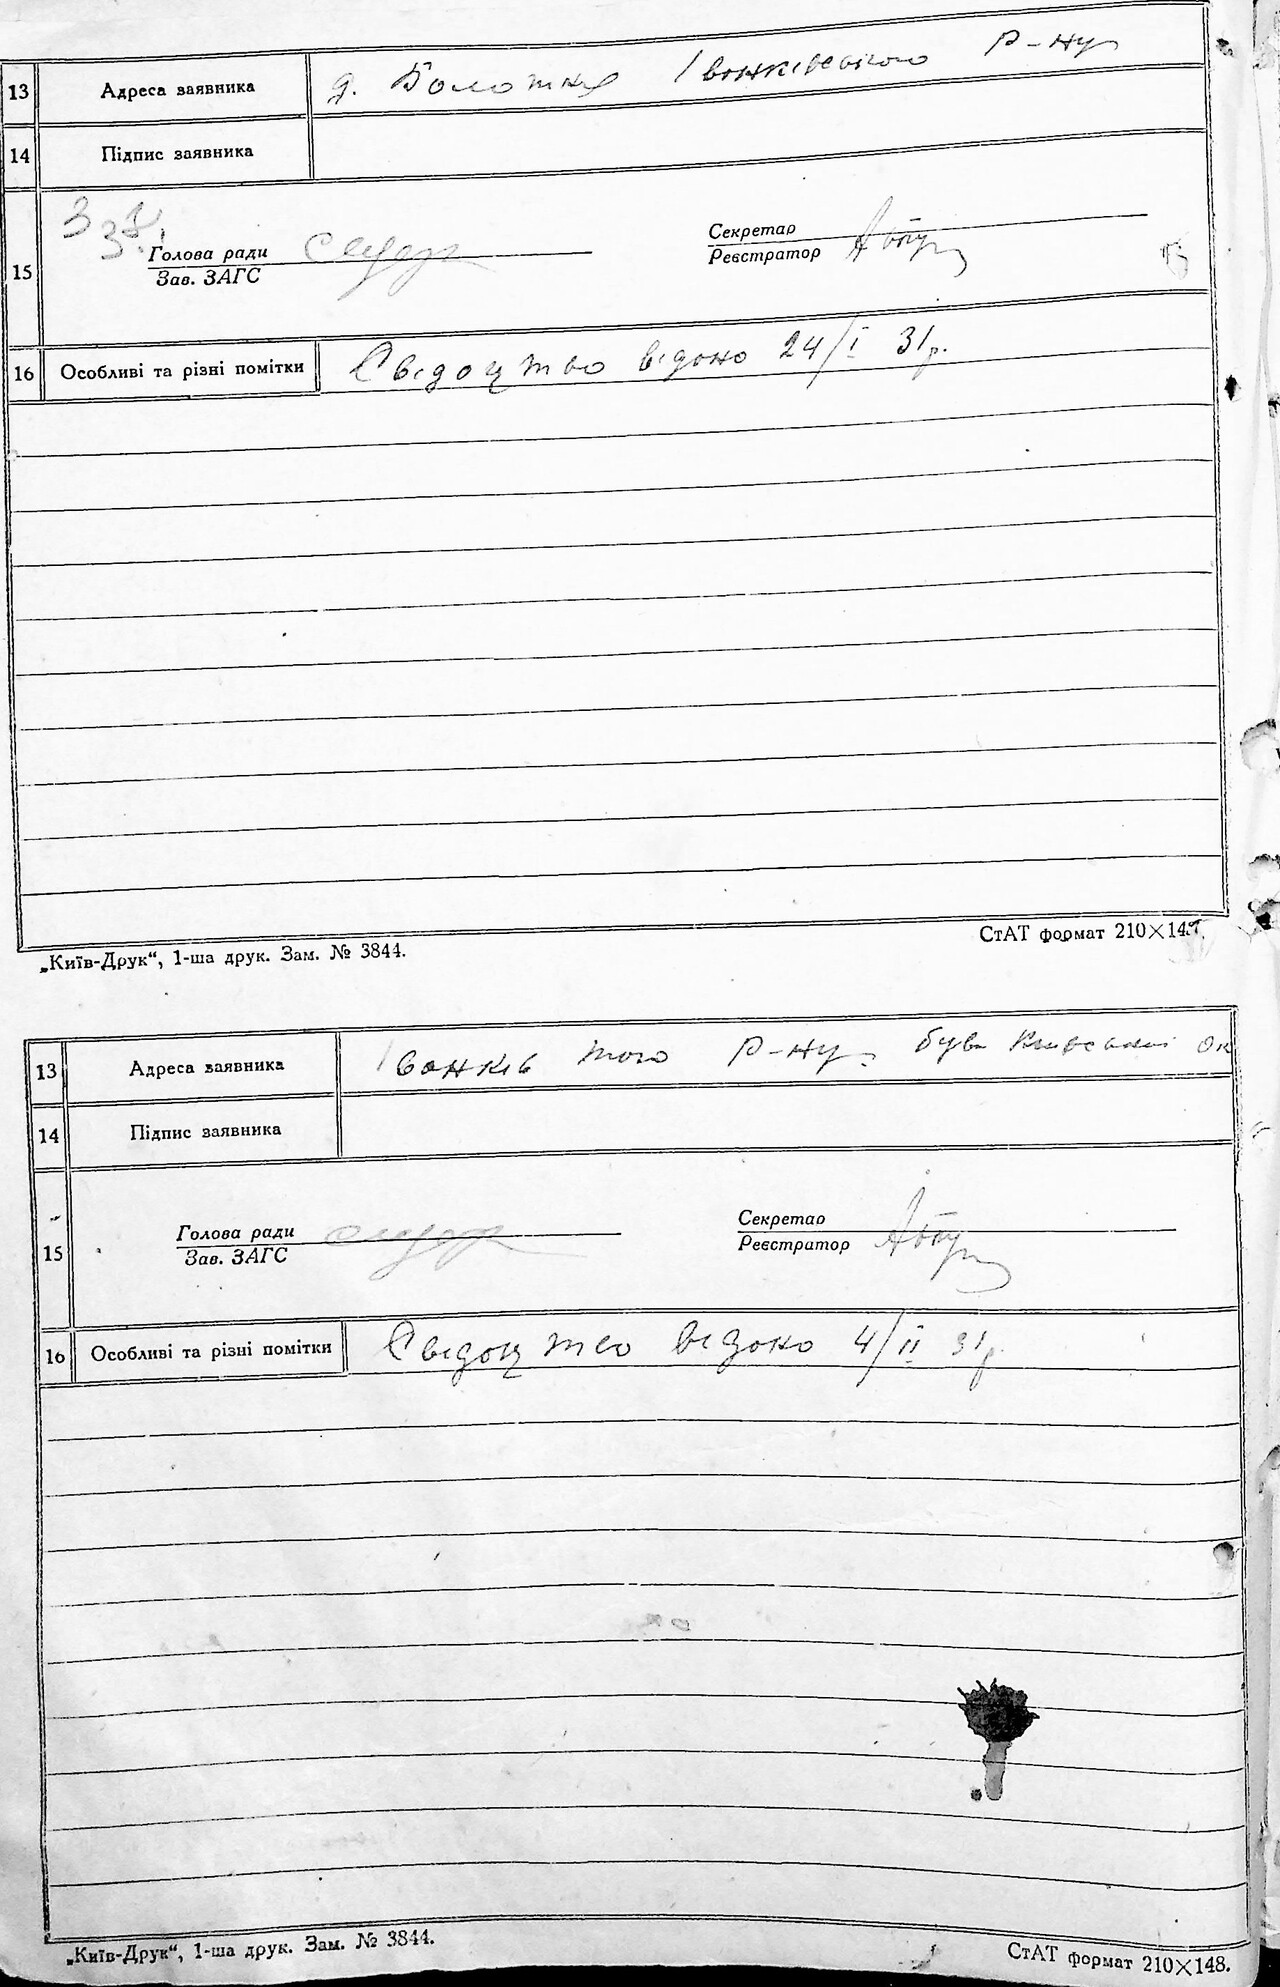 13 Адреса заявника д. Болотня Іванківського р-ну
14 Підпис заявника
15 Голова ради
Зав. ЗАГС
Секретар
Реєстратор
16 Особливі та різні помітки Свідоцтво відано 24/І 31р.
„Київ-Друк“, 1-ша друк. Зам. № 3844.
СтАТ формат 210×148.
13 Адреса заявника Іванків того р-ну був. Київської ок
14 Підпис заявника
15 Голова ради
Зав. ЗАГС
Секретар
Реєстратор
16 Особливі та різні помітки Свідоцтво відано 4/ІІ 31р.
„Київ-Друк“, 1-ша друк. Зам. № 3844.
СтАТ формат 210×148.